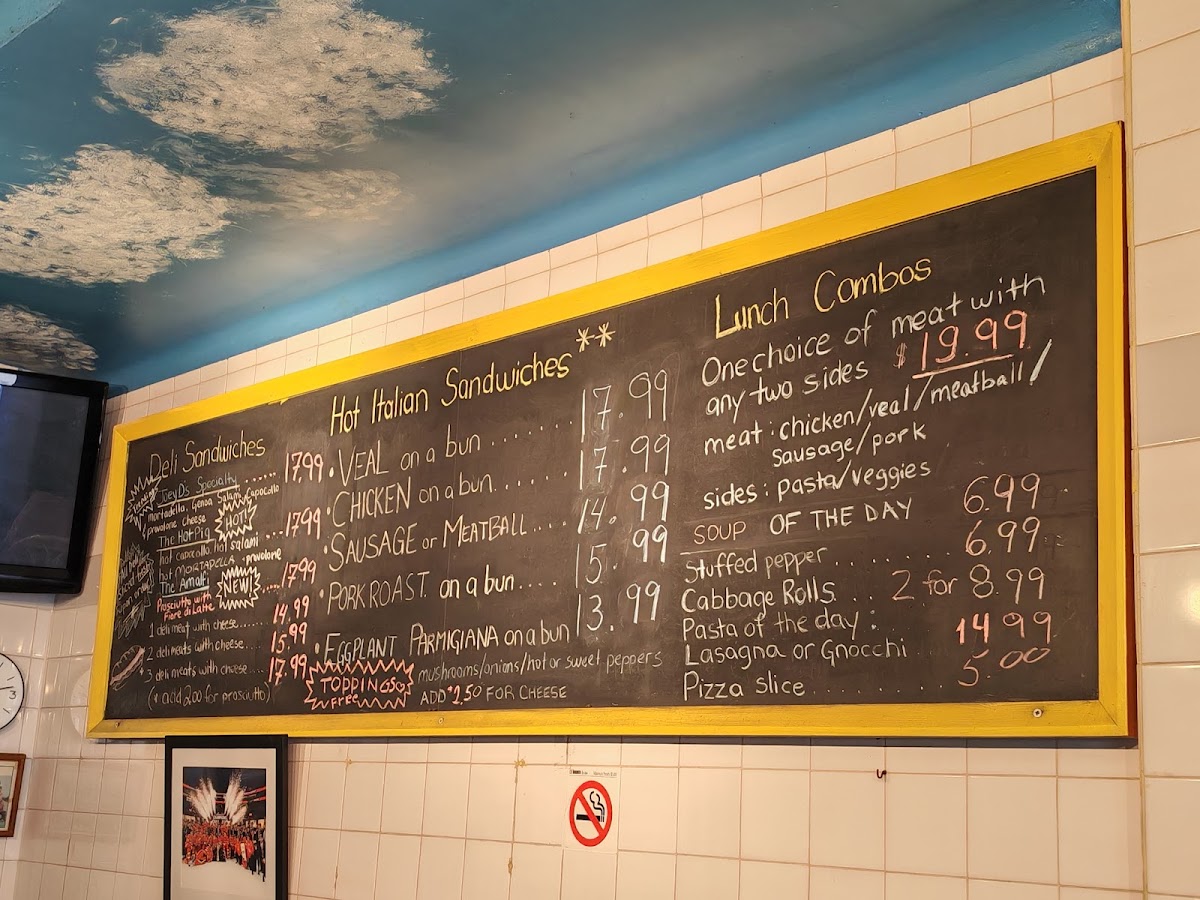 Deli Sandwiches
Joey D's Specialty ..... 17.99
Mortadella, Genoa Salami, Capocollo
provolone cheese
The Hot Pig HOT! ... 1799
hot capocollo, hot salami
hot MORTADELLA, provolone
The Amalfi NEW! .... 1799
Prosciutto with
Fiore di Latte
1 deli meat with cheese...... 14.99
2 deli meats with cheese.... 15.99
3 deli meats with cheese.... 17.99
(* add 2.00 for prosciutto)
Hot Italian Sandwiches **
VEAL on a bun ....... 17.99
CHICKEN on a bun..... 17.99
SAUSAGE or MEATBALL.... 14.99
PORK ROAST on a bun.... 15.99
EGGPLANT PARMIGIANA on a bun 13.99
TOPPINGS
FREE
mushrooms/onions/hot or sweet peppers
ADD $2.50 FOR CHEESE
Lunch Combos
One choice of meat with
any two sides $19.99
meat: chicken/veal/meatball/
Sausage/pork
sides: pasta/veggies
SOUP OF THE DAY 6.99
Stuffed pepper ........ 6.99
Cabbage Rolls ... 2 for 8.99
Pasta of the day:
Lasagna or Gnocchi 14.99
Pizza Slice ........ 5.00
3